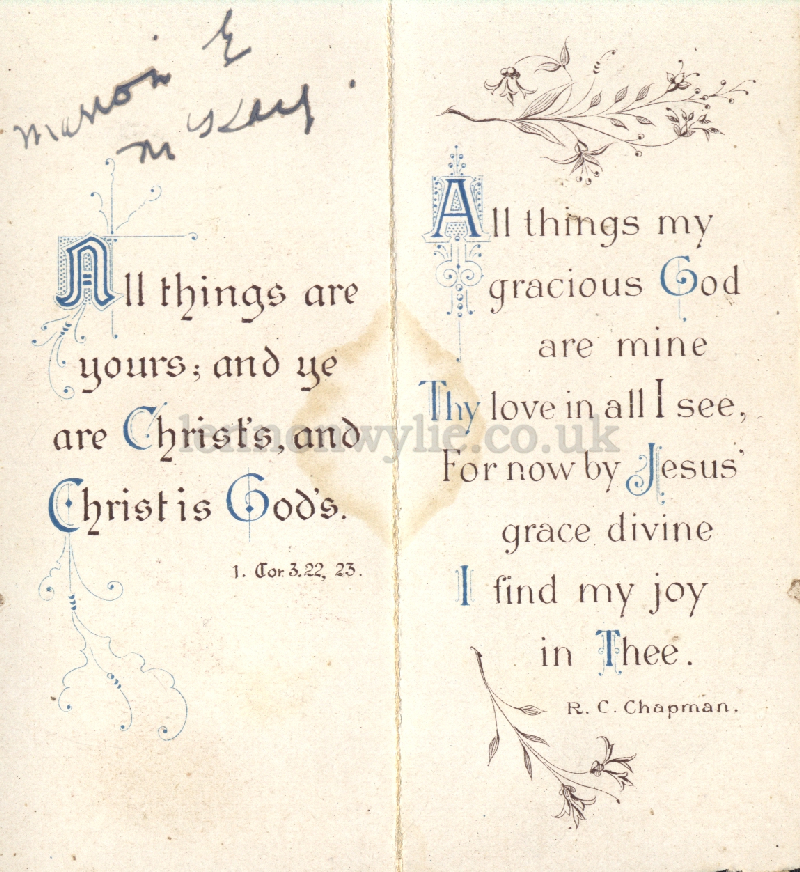 Marion E
McKay.
All things are
yours; and ye
are Christ's, and
Christ is God's.
1. Cor 3.22, 23.
All things my
gracious God
are mine
Thy love in all I see,
For now by Jesus'
grace divine
I find my joy
in Thee.
R. C. Chapman.
lennonwylie.co.uk